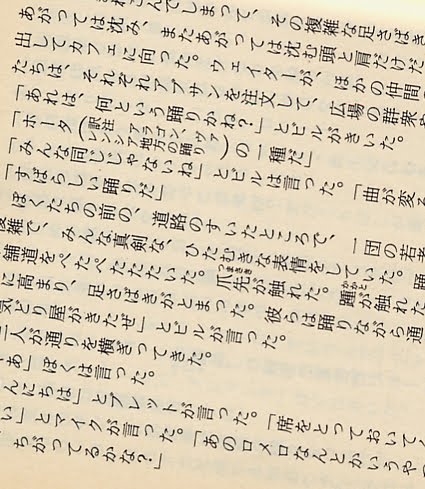 れこんでしまって、その複雑な足さばき
あがっては沈み、またあがっては沈む頭と肩だけだ
出してカフェに向った。ウェイターが、ほかの仲間の
たちは、それぞれアブサンを注文して、広場の群衆や
「あれは、何という踊りかね？」とビルがきいた。
「ホータ（訳注 アラゴン、ヴァレンシア地方の踊り）の一種だ」
「みんな同じじゃないね」とビルは言った。「曲が変る
「すばらしい踊りだ」
ぼくたちの前の、道路のすいたところで、一団の若者
複雑で、みんな真剣な、ひたむきな表情をしていた。踊
舗道をぺたぺたたたいた。爪先が触れた。踵が触れた
に高まり、足さばきがとまった。彼らは踊りながら通
気どり屋がきたぜ」とビルが言った。
二人が通りを横ぎってきた。
あ」ぼくは言った。
んにちは」とブレットが言った。「席をとっておいてく
い」とマイクが言った。「あのロメロなんとかいうやつ
ちがってるかな？」